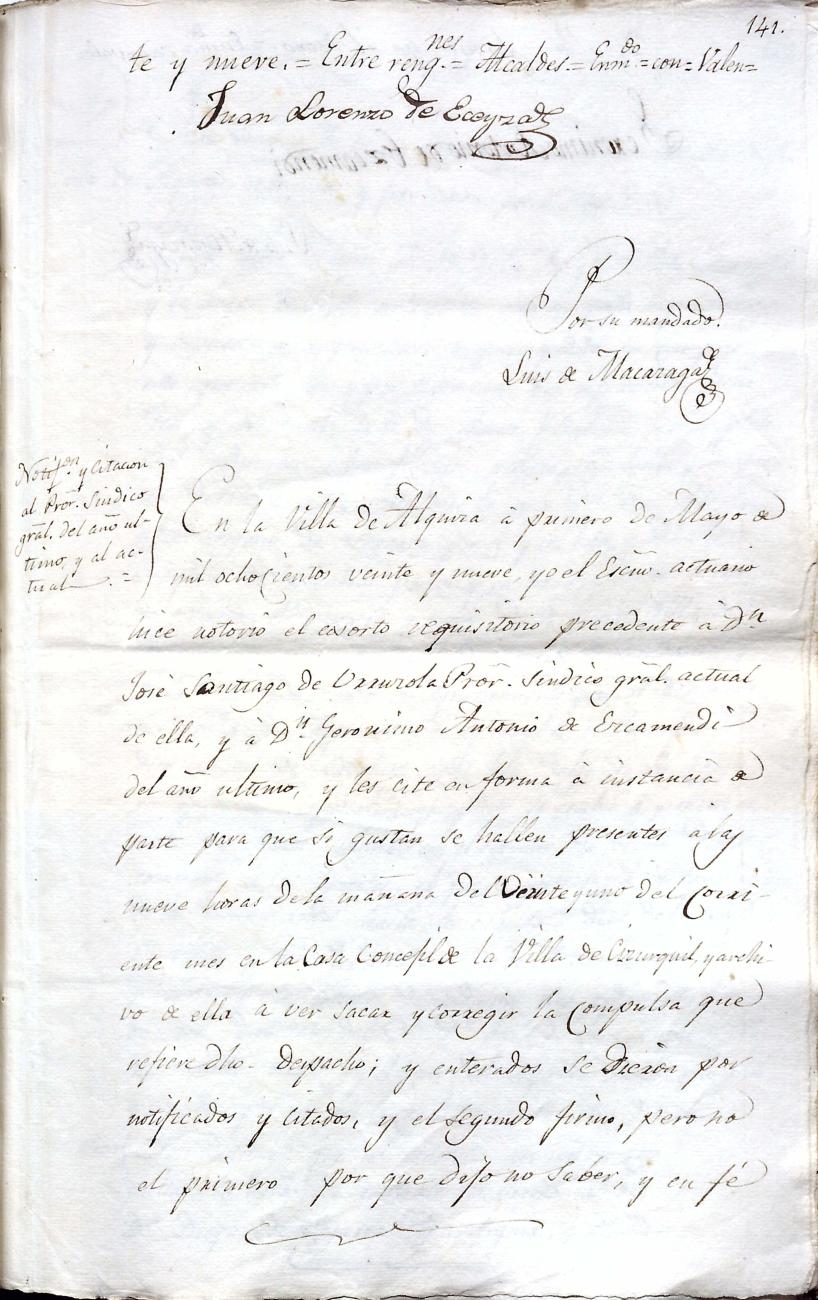 141.
te y nueve. = Entre reng.nes = Alcaldes = Enm.do = con = Valen =
Juan Lorenzo de Eceyza
Por su mandado.
Luis de Macazaga
Notif.on y Citacion
al Pror. Sindico
gral. del año ul-
timo, y al ac-
tual =
En la Villa de Alquiza à primero de Mayo de
mil ochocientos veinte y nueve, yo el Escño. actuario
hice notorio el exorto requisitorio precedente à Dn
José Santiago de Urruzola Pror. Sindico gral. actual
de ella, y à Dn. Geronimo Antonio de Ercamendi
del año ultimo, y les cite en forma à instancia de
parte para que si gustan se hallen presentes a las
nueve horas de la mañana del Veinte y uno del Corri-
ente mes en la Casa Concejil de la Villa de Cizurquil, y archi-
vo de ella à ver sacar y corregir la Compulsa que
refiere dho. despacho; y enterados se Dieron por
notificados y Citados, y el segundo firmo, pero no
el primero por que dijo no Saber, y en fé